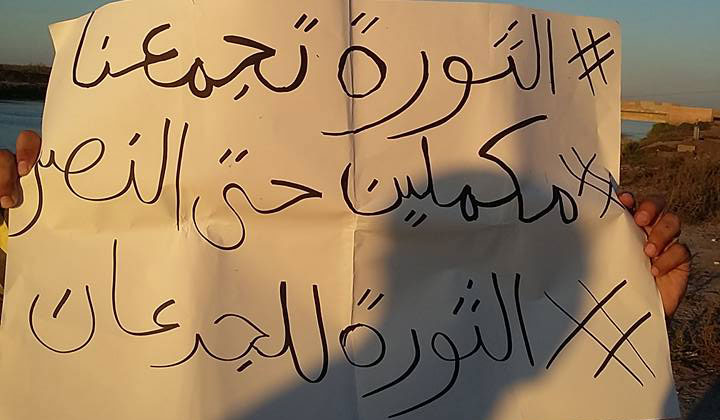 #الثورة تجمعنا
#مكملين حتى النصر
#الثورة للجدعان